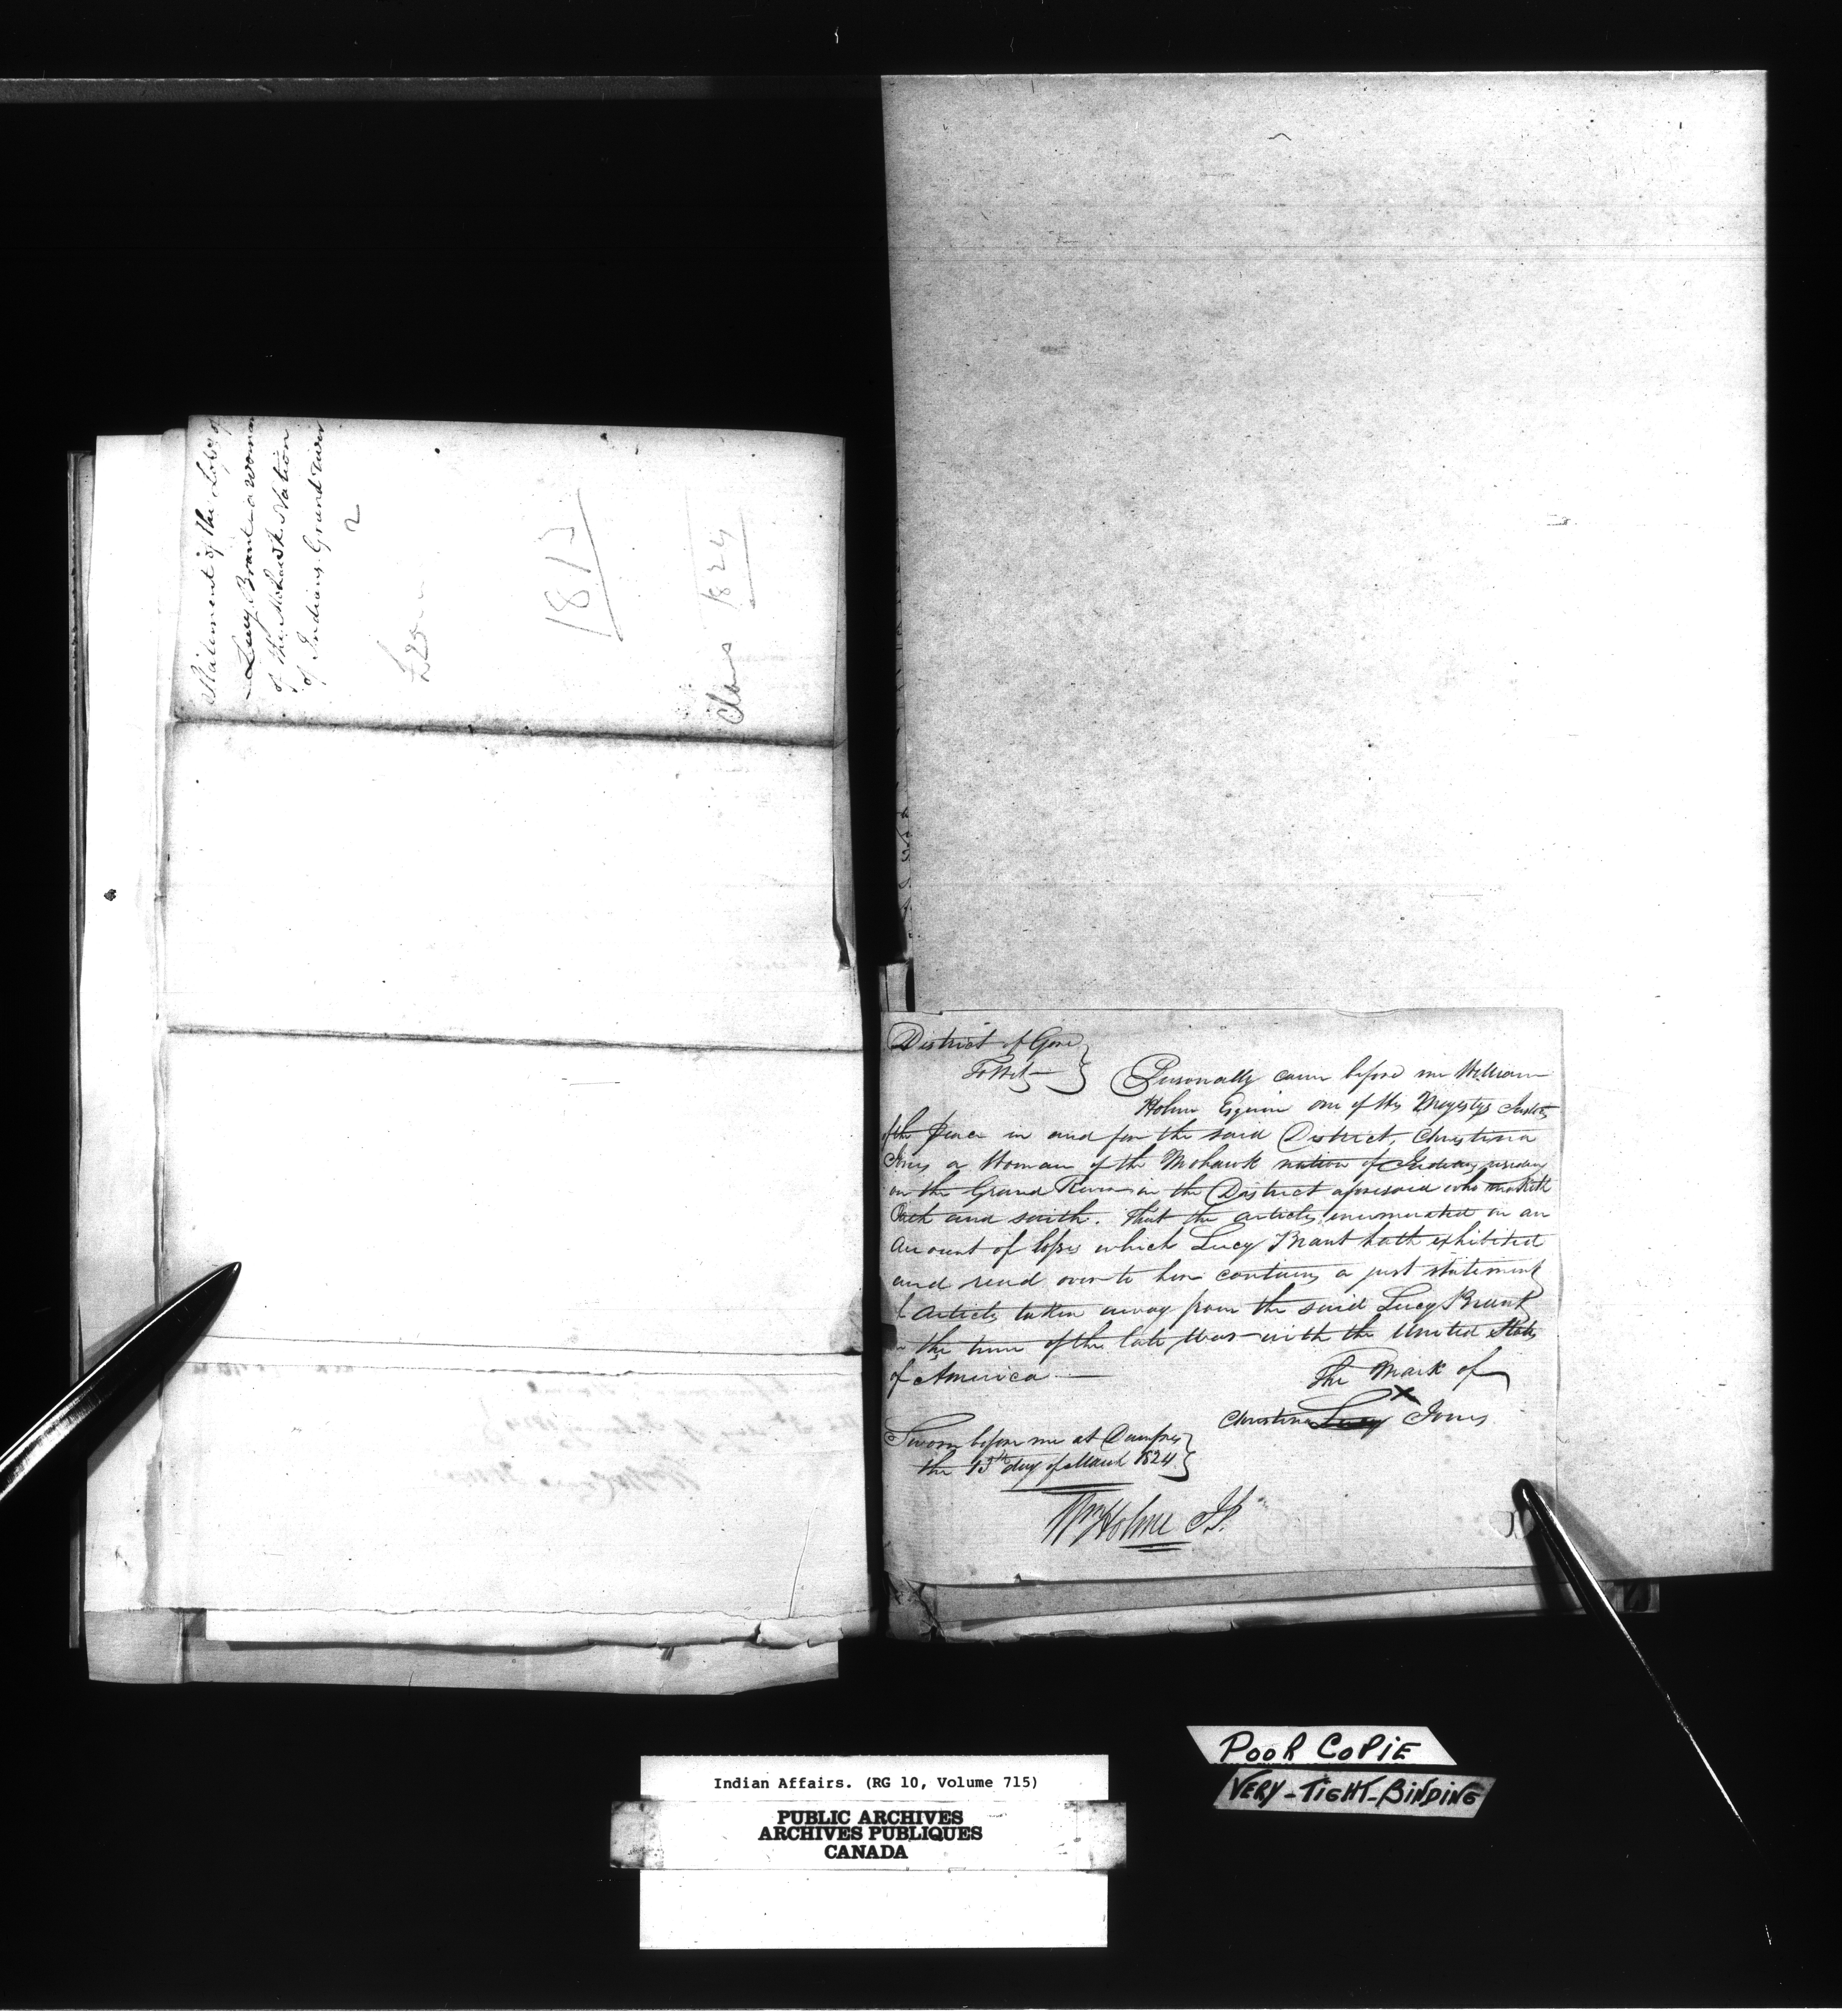 Statement of the Losses of
Lucy Brant a woman
of the Mohawk Nation
of Indians Grand River
2
1812
Claus 1824
District of Gore
To Wit
Personally came before me William
Holme Esquire one of His Majestys Justices
of the Peace in and for the said District, Christina
Jones a Woman of the Mohawk nation of Indians residing
on the Grand River in the District aforesaid who maketh
Oath and saith. That the articles enumerated in an
Account of losses which Lucy Brant hath exhibited
and read over to her contains a just statement
of Articles taken away from the said Lucy Brant
in the time of the late War with the United States
of America
The Mark of
X
Christina Lucy Jones
Sworn before me at Dumfries
the 13th day of March 1824
Wm Holme JP.
Indian Affairs. (RG 10, Volume 715)
PUBLIC ARCHIVES
ARCHIVES PUBLIQUES
CANADA
POOR COPIE
VERY-TIGHT-BINDING